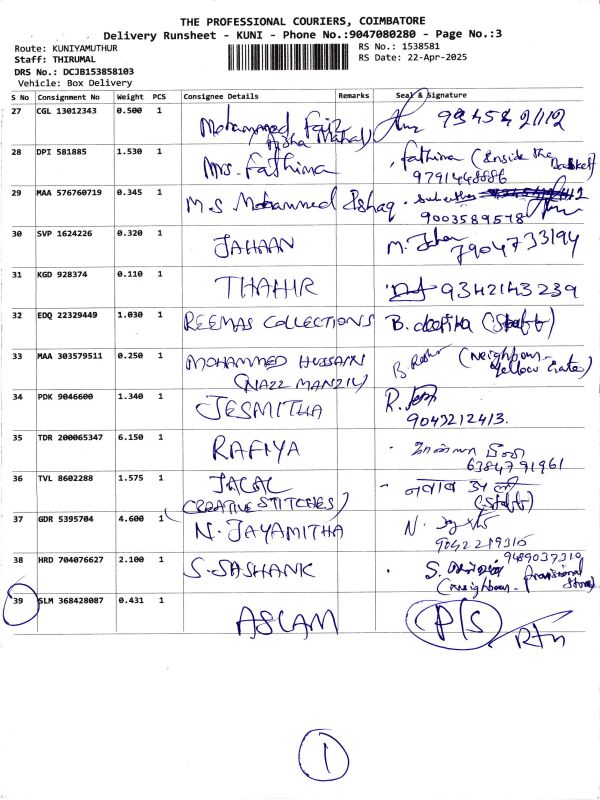 THE PROFESSIONAL COURIERS, COIMBATORE
Delivery Runsheet - KUNI - Phone No.:9047080280 - Page No.:3
Route: KUNIYAMUTHUR RS No.: 1538581
Staff: THIRUMAL RS Date: 22-Apr-2025
DRS No.: DCJB153858103
Vehicle: Box Delivery
S No Consignment No Weight PCS Consignee Details Remarks Seal & Signature
27 CGL 13012343 0.500 1
Mohammed Faiz 9345421112
(Aisha Mahal)
28 DPI 581885 1.530 1
Mrs. Fathima Fathima (Inside the Basket)
9791448886
29 MAA 576760719 0.345 1
M.S Mohammed Ishaq
9003589578
30 SVP 1624226 0.320 1
JAHAAN M. 7904733194
31 KGD 928374 0.110 1
THAHIR 9342143239
32 EDQ 22329449 1.030 1
REEMAS COLLECTIONS B. deepika (Staff)
33 MAA 303579511 0.250 1
MOHAMMED HUSSAIN (Neighbour-
(NAZZ MANZIL) Yellow Gate)
34 PDK 9046600 1.340 1
JESMITHA R.
9043212413.
35 TDR 200065347 6.150 1
RAFIYA
6384791961
36 TVL 8602288 1.575 1
JALAL नवाब अली
(CREATIVE STITCHES) (Staff)
37 GDR 5395704 4.600 1
N. JAYAMITHA N.
9042219316
38 HRD 704076627 2.100 1 9489037310
S. SASHANK S.
(Neighbour - Provisional Store)
39 SLM 368428087 0.431 1
ASLAM P/S
Rtn
1